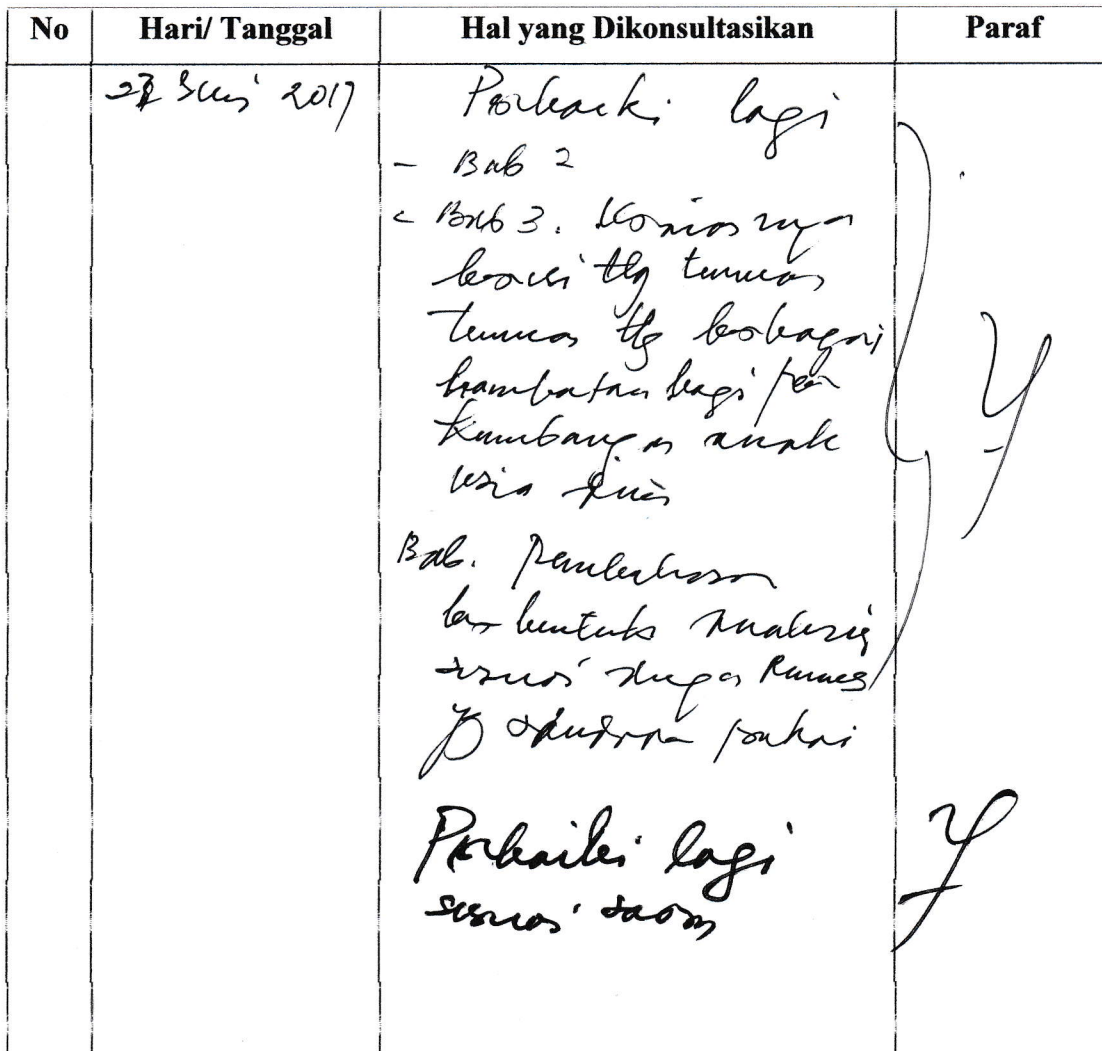 No Hari/ Tanggal Hal yang Dikonsultasikan Paraf
2017 Perbaiki lagi
- Bab 2
- Bab 3.
berisi ttg temuan
temuan ttg berbagai
hambatan bagi per
kembangan anak
usia dini
Bab. Pembahasan
bentuk analisis
sesuai dengan Rumus
yg saudara pakai
Perbaiki lagi
sesuai saran